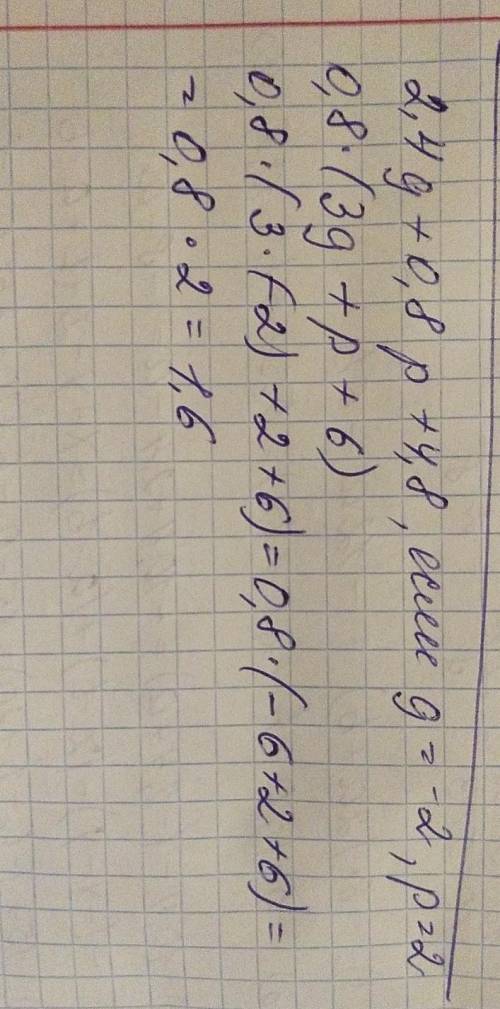 2,4g + 0,8p + 4,8, если g = -2, p = 2
0,8 · (3g + p + 6)
0,8 · (3 · (-2) + 2 + 6) = 0,8 · (-6 + 2 + 6) =
= 0,8 · 2 = 1,6